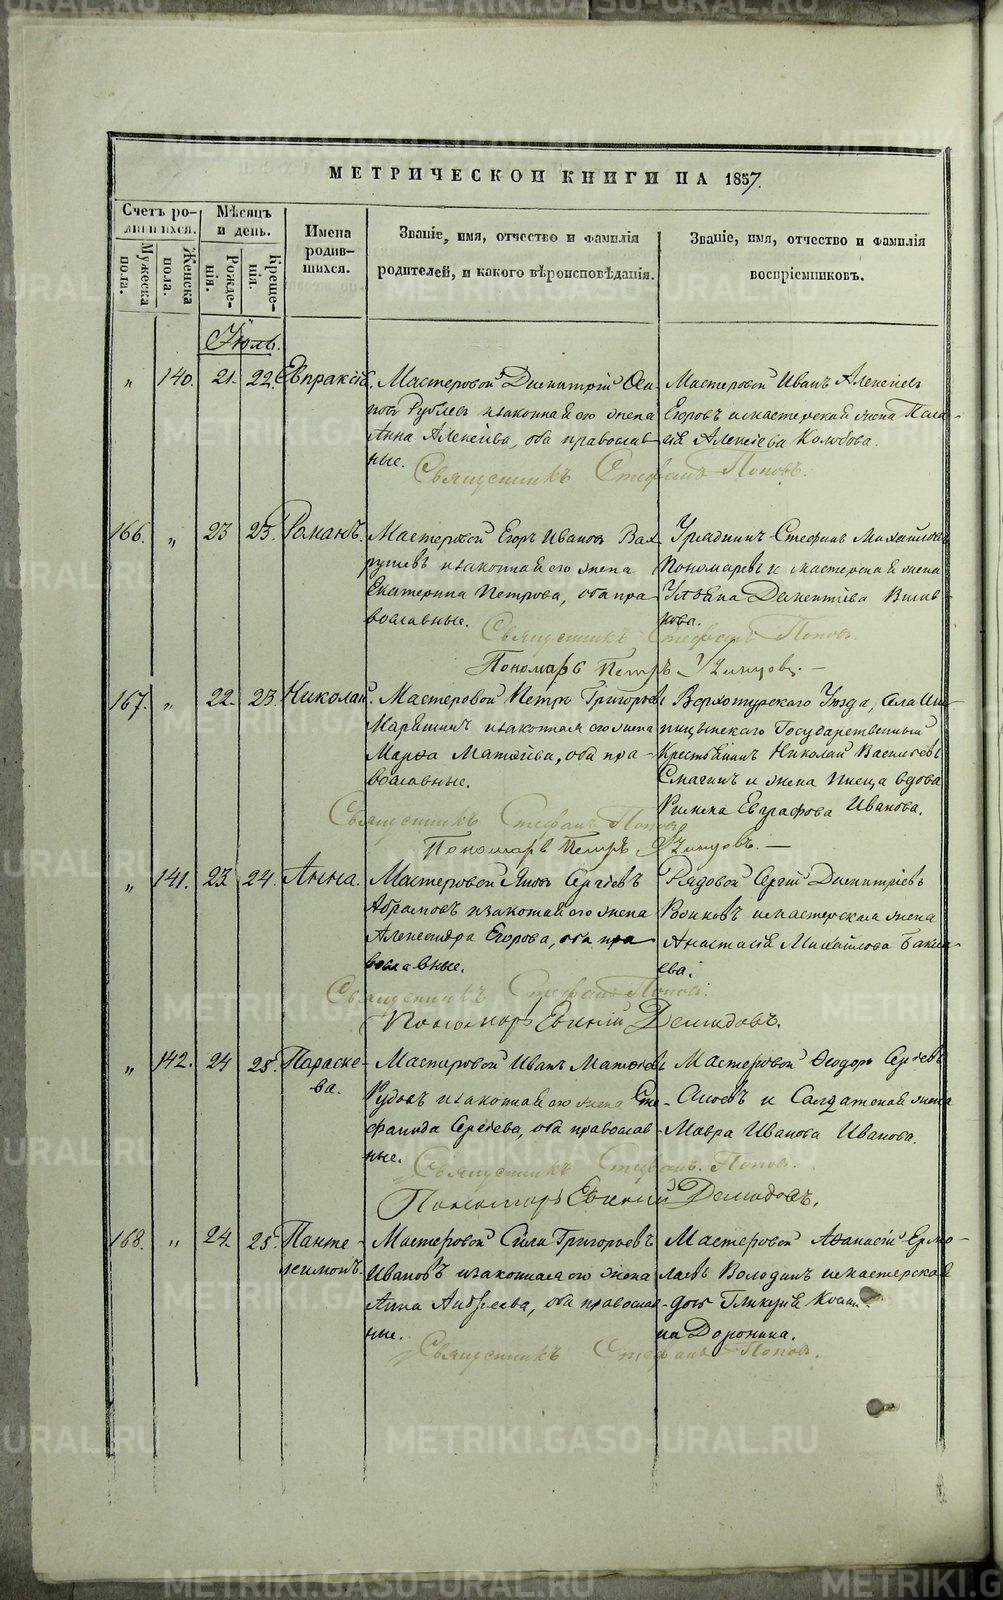 METRIKI.GASO-URAL.RU
МЕТРИЧЕСКОЙ КНИГИ НА 1857.
Счетъ родившихся.
Мужеска пола.
Женска пола.
Мѣсяцъ и день.
Рожденія.
Крещенія.
Имена родившихся.
Званіе, имя, отчество и фамилія
родителей, и какого вѣроисповѣданія.
Званіе, имя, отчество и фамилія
воспріемниковъ.
Іюль.
„ 140. 21. 22. Евпраксія.
Мастеровой Димитрій Оси-
повъ Рублевъ и законная его жена
Анна Алексѣева, оба православ-
ные.
Мастеровой Иванъ Алексѣевъ
Егоровъ и мастерская жена Пела-
гія Алексѣева Колобова.
Священникъ Стефанъ Поповъ.
166. „ 23 25. Романъ.
Мастеровой Егоръ Ивановъ Вах-
рушевъ и законная его жена
Екатерина Петрова, оба пра-
вославные.
Урядникъ Стефанъ Михайловъ
Пономаревъ и мастерская жена
Дементіева
Священникъ Стефанъ Поповъ.
Пономарь Петръ
167. „ 22. 23. Николай.
Мастеровой Петръ Григорьевъ
и законная его жена
Марѳа Матвѣева, оба пра-
вославные.
Верхотурскаго Уѣзда, Села
Государственный
Крестьянинъ Николай Васильевъ
Смагинъ и жена писца вдова
Евграфова Иванова.
Священникъ Стефанъ Поповъ
Пономарь Петръ
„ 141. 23. 24. Анна.
Мастеровой Яковъ Сергѣевъ
Абрамовъ и законная его жена
Александра Егорова, оба пра
вославные.
Рядовой Сергій Димитріевъ
Воиновъ и мастерская жена
Анастасія Михайлова
Священникъ Стефанъ Поповъ.
Пономарь Евгеній Демидовъ.
„ 142. 24 25. Параске-
ва.
Мастеровой Иванъ Матвѣевъ
Рудовъ и законная его жена Сте-
фанида Сергѣева, оба православ-
ные.
Мастеровой Ѳеодоръ Сергѣевъ
и Салдатская жена
Мавра Иванова Иванова.
Священникъ Стефанъ Поповъ.
Пономарь Евгеній Демидовъ.
168. „ 24. 25. Панте-
леимонъ.
Мастеровой Сила Григорьевъ
Ивановъ и законная его жена
Анна Андреева, оба православ-
ные.
Мастеровой Аѳанасій Ермо-
лаевъ Володинъ и мастерская
дочь Гликерія
на Доронина.
Священникъ Стефанъ Поповъ.